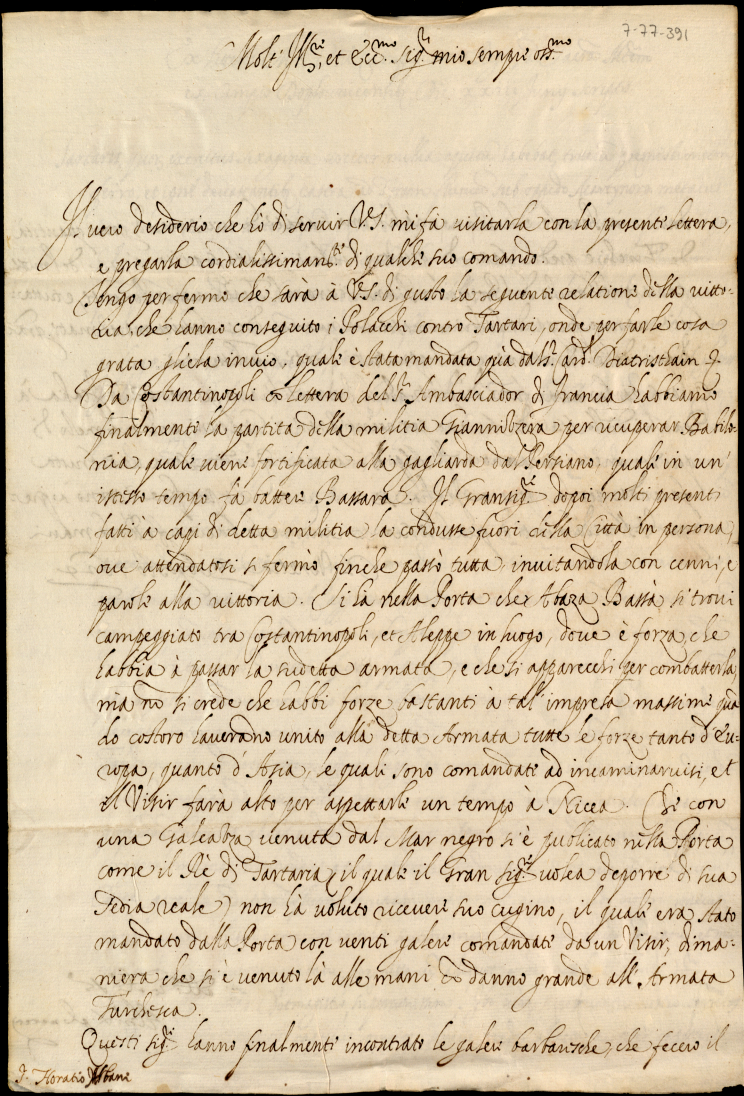 7-77-391
Molt' Ill.re, et Ecc.mo Sig.r mio sempre oss.mo
Il vero desiderio che hò di seruir V.S. mi fà uisitarla con la presente lettera,
e pregarla cordialissimam.te di qualche suo comando.
Tengo per fermo che sarà à V.S. di gusto la seguente relatione della uitto-
ria, che hanno conseguito i Polacchi contro Tartari, onde per farle cosa
grata gliela inuio, quale è stata mandata quà dal S.r Card. Diatristhain
Da Costantinopoli co lettera del S.r Ambasciador di francia habbiamo
finalmente la partita della militia Giannizzera per ricuperar Babilo-
nia, quale uiene fortificata alla gagliarda dal Persiano, quale in un'
istesso tempo fà batter Bassara. Il Gransig.re dopoi molti presenti
fatti à capi di detta militia la condusse fuori della Città in persona,
oue attendatosi si fermò finche passò tutta inuitandola con cenni, e
parole alla uittoria. Si hà nella Porta che Abaza Bassà si troui
campeggiato tra Costantinopoli, et Aleppe in luogo, doue è forza, che
habbia à passar la sudetta armata, e che si apparecchi per combatterla,
ma no si crede che habbi forze bastanti à tal' impresa massime qua
do costoro haueranno unito alla detta Armata tutte le forze tanto d'Eu-
ropa, quanto d'Asia, le quali sono comandate ad incaminaruisi, et
il Visir farà alto per aspettarle un tempo à Nicea. Che con
una Galeazza uenuta dal Mar negro si è publicato nella Porta
come il Rè di Tartaria (il quale il Gran sig.re uolea deporre di sua
Sedia reale) non hà uoluto riceuere suo cugino, il quale era stato
mandato dalla Porta con uenti galere comandate da un Visir, di ma-
niera che si è uenuto là alle mani co danno grande all'Armata
Turchesca.
Questi sig.ri hanno finalmente incontrato le galere barbaresche, che fecero il
Horatio